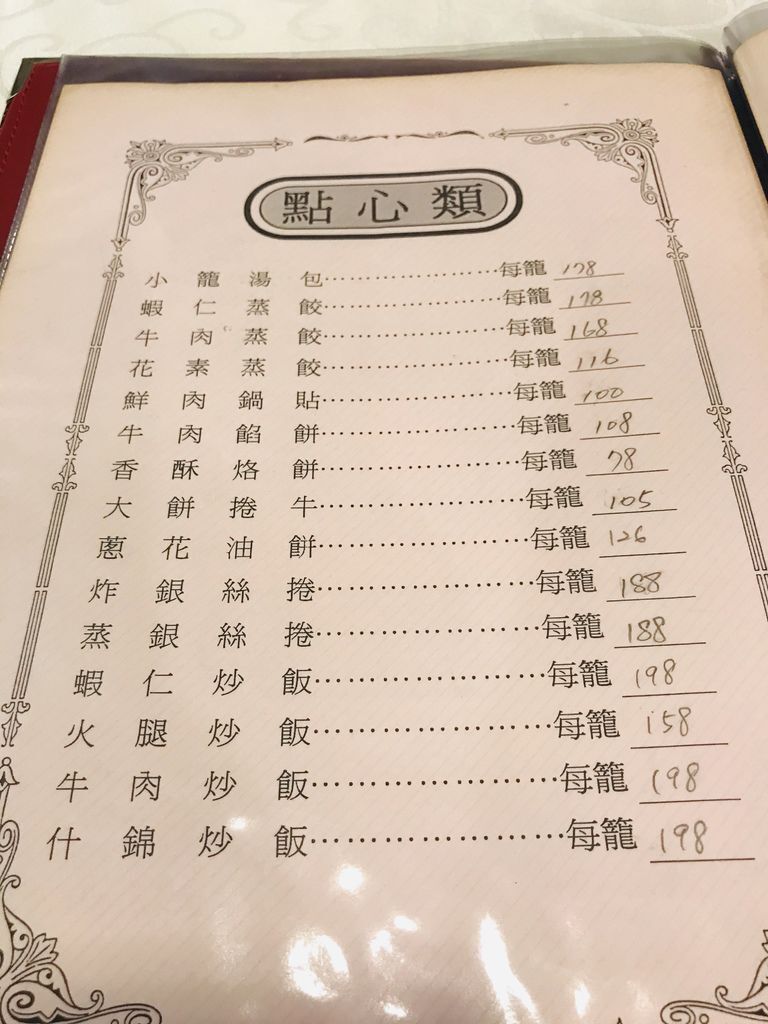 點心類
小籠湯包……………………每籠 178
蝦仁蒸餃……………………每籠 178
牛肉蒸餃……………………每籠 168
花素蒸餃……………………每籠 116
鮮肉鍋貼……………………每籠 100
牛肉餡餅……………………每籠 108
香酥烙餅……………………每籠 78
大餅捲牛……………………每籠 105
蔥花油餅……………………每籠 126
炸銀絲捲……………………每籠 188
蒸銀絲捲……………………每籠 188
蝦仁炒飯……………………每籠 198
火腿炒飯……………………每籠 158
牛肉炒飯……………………每籠 198
什錦炒飯……………………每籠 198